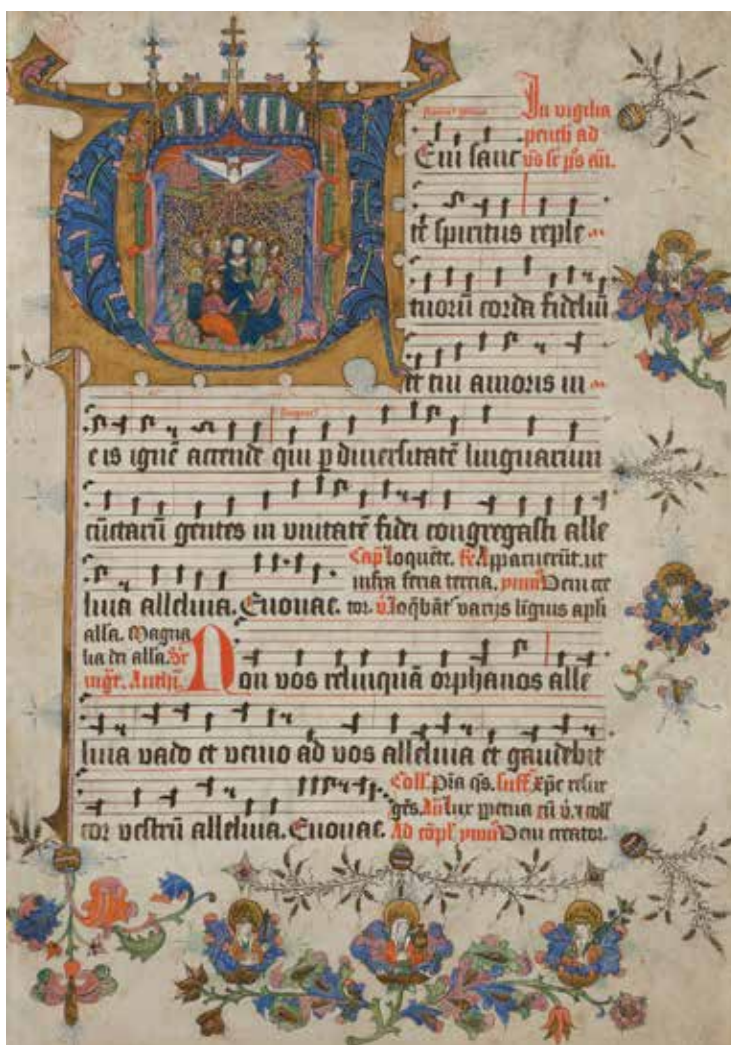 In vigilia
Eni sanc
te spiritus reple
tuorū corda fideliū
et tui amoris in
e is ignē accende qui p diuersitatē linguarum
cūctarū gentes in vnitatē fidei congregasti alle
Cap̄ loquēte. Apparuerūt. ut
infra feria tercia. ymnꝰ Veni cre
luia alleluia. Euouae. tor. loq̄bāt varijs līguis apli
alla. Magna
lia dei alla.
Non vos relinquā orphanos alle
luia vado et venio ad vos alleluia et gaudebit
ges. lux ppetua
cor vestrū alleluia. Euouae. Ad cōpl ymnꝰ Veni creator.